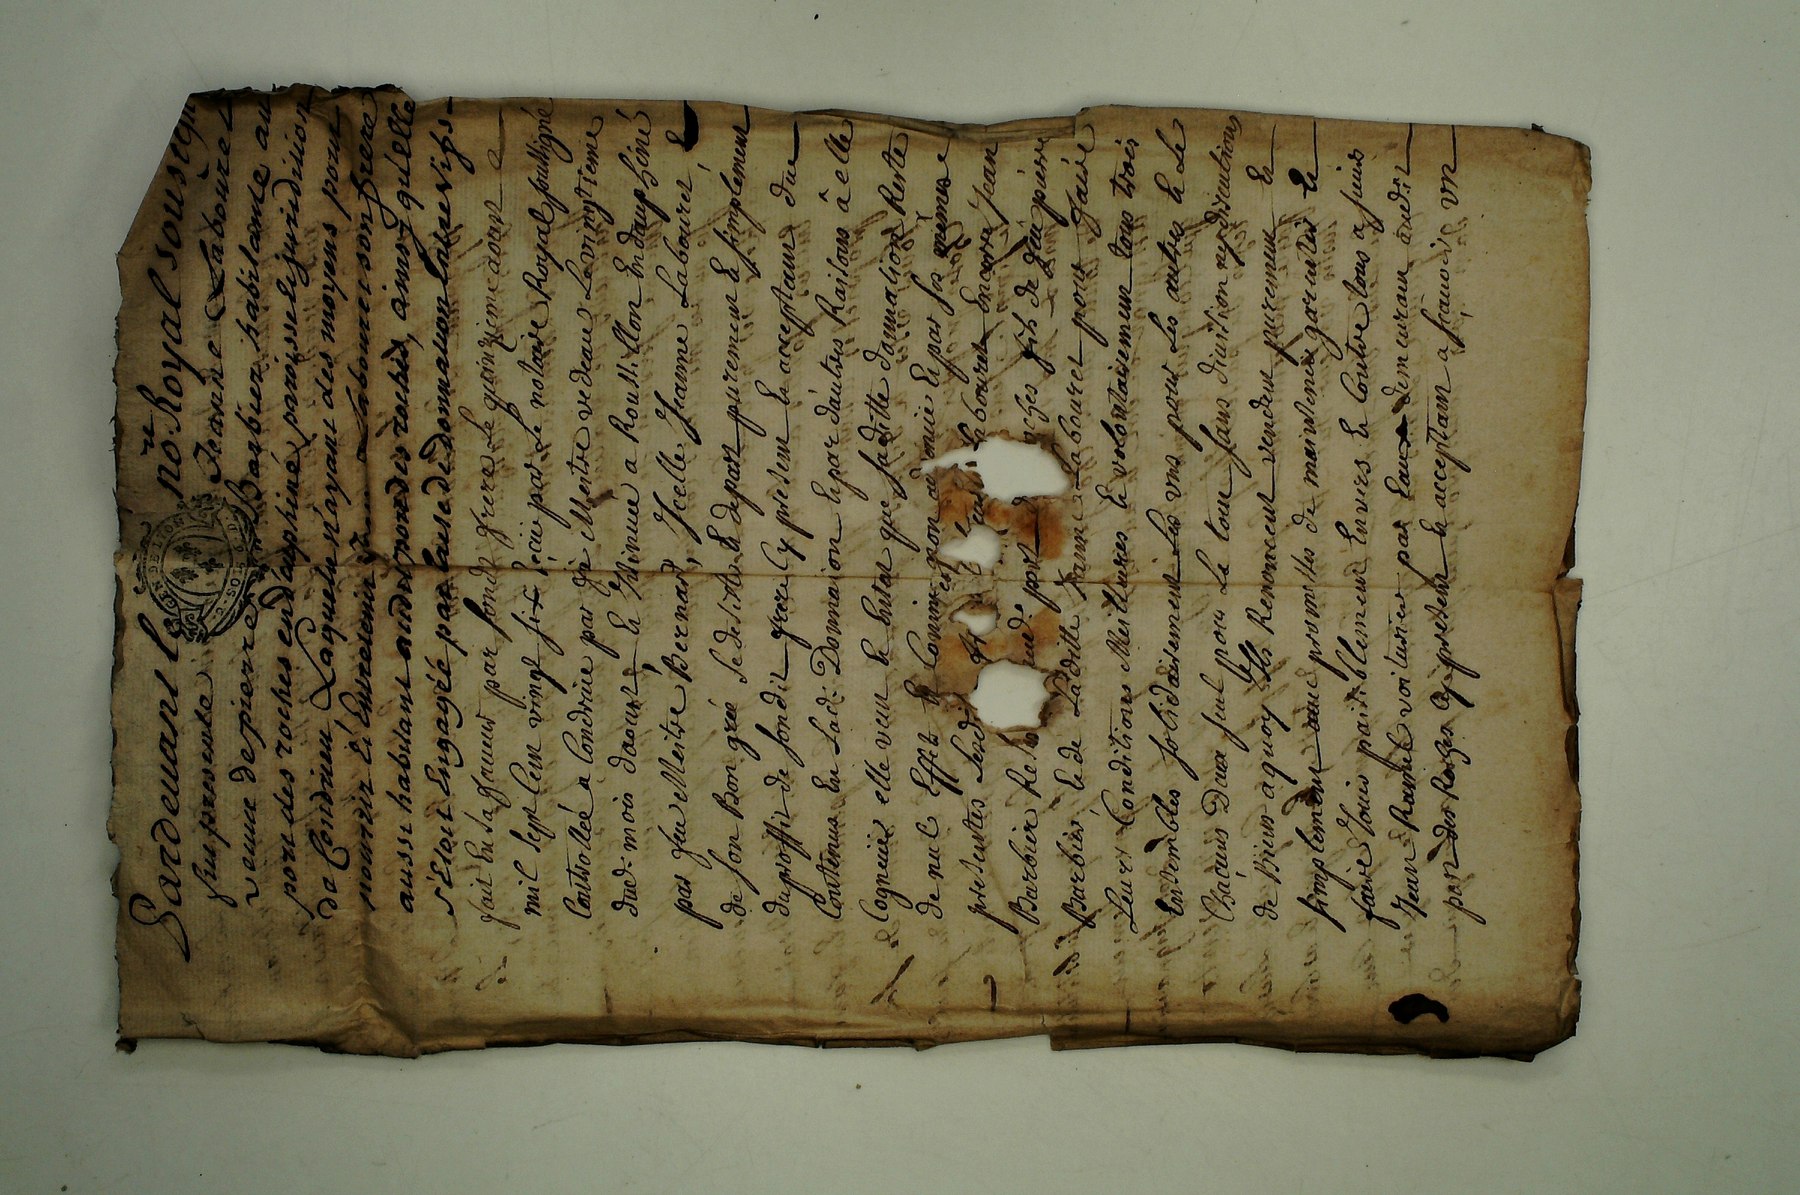 Pardevant le nore Royal soussigné
fut presente Jeanne Labouret
veuve de pierre Barbier habitante au
port des roches en dauphiné paroisse et juridiction
de Condrieu Laquelle n'ayant des moyens pour
nourrir et Entretenir Labouret son frere
aussi habitant audit port des roches, ainsy quelle
s'Etoit Engagée par lacte de donnation
fait En sa faveur par sondit frere le quinzieme aout
mil sept Cent vingt six reçue par le notaire Royal soussigné
Controllée a Condrieu par Me vedeau Le vingtieme
dud. mois daoust, et insinuée a Roussillon En dauphiné
par feu Maitre Bernard, Jcelle Jeanne Labouret
de son Bon gré se desiste et depart purement et simplement
du proffit de sondit frere Cy present et acceptant du
Contenu En Lad. Donnation et par dautres Raisons à elle
Cognues elle veut et Entat que sadite donnation Reste
de nul Effet et Comme non advenue Et par ses mêmes
presentes Labouret Encore Jean
Barbier fils de feu pierre
Barbier et de Laditte Jeanne Labouret pour faire
Leurs Conditions Meilleures et volontairement tous trois
Ensembles solidairement Les uns pour Les autres et Le
Châcuns Deux seul pour Le tout sans division ny discution
de Biens a quoy Ils Renoncent vendent purement Et
simplement avec promesses de maintenir garentir Et
faire Jouir paisiblement Envers Et Contre tous a sieur
Jean voiturier par Eau demeurant audit
port des Roches Cy present Et acceptant a sçavoir un